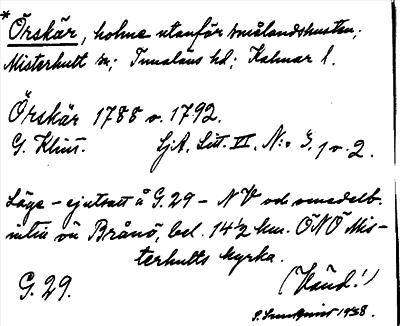 * Örskär, holme utanför smålandskusten;
Misterhult sn; Tunaläns hd; Kalmar l.
Örskär 1788 o. 1792.
G. Klint. SjA. Litt. II, N:o 3, 1 o. 2.
Läge - ej utsatt å G. 29 - NV och omedelb.
intill ön Brånö, bel. 14 1/2 km. ÖNÖ Mis-
terhults kyrka.
G. 29. (Vänd!)
1938.